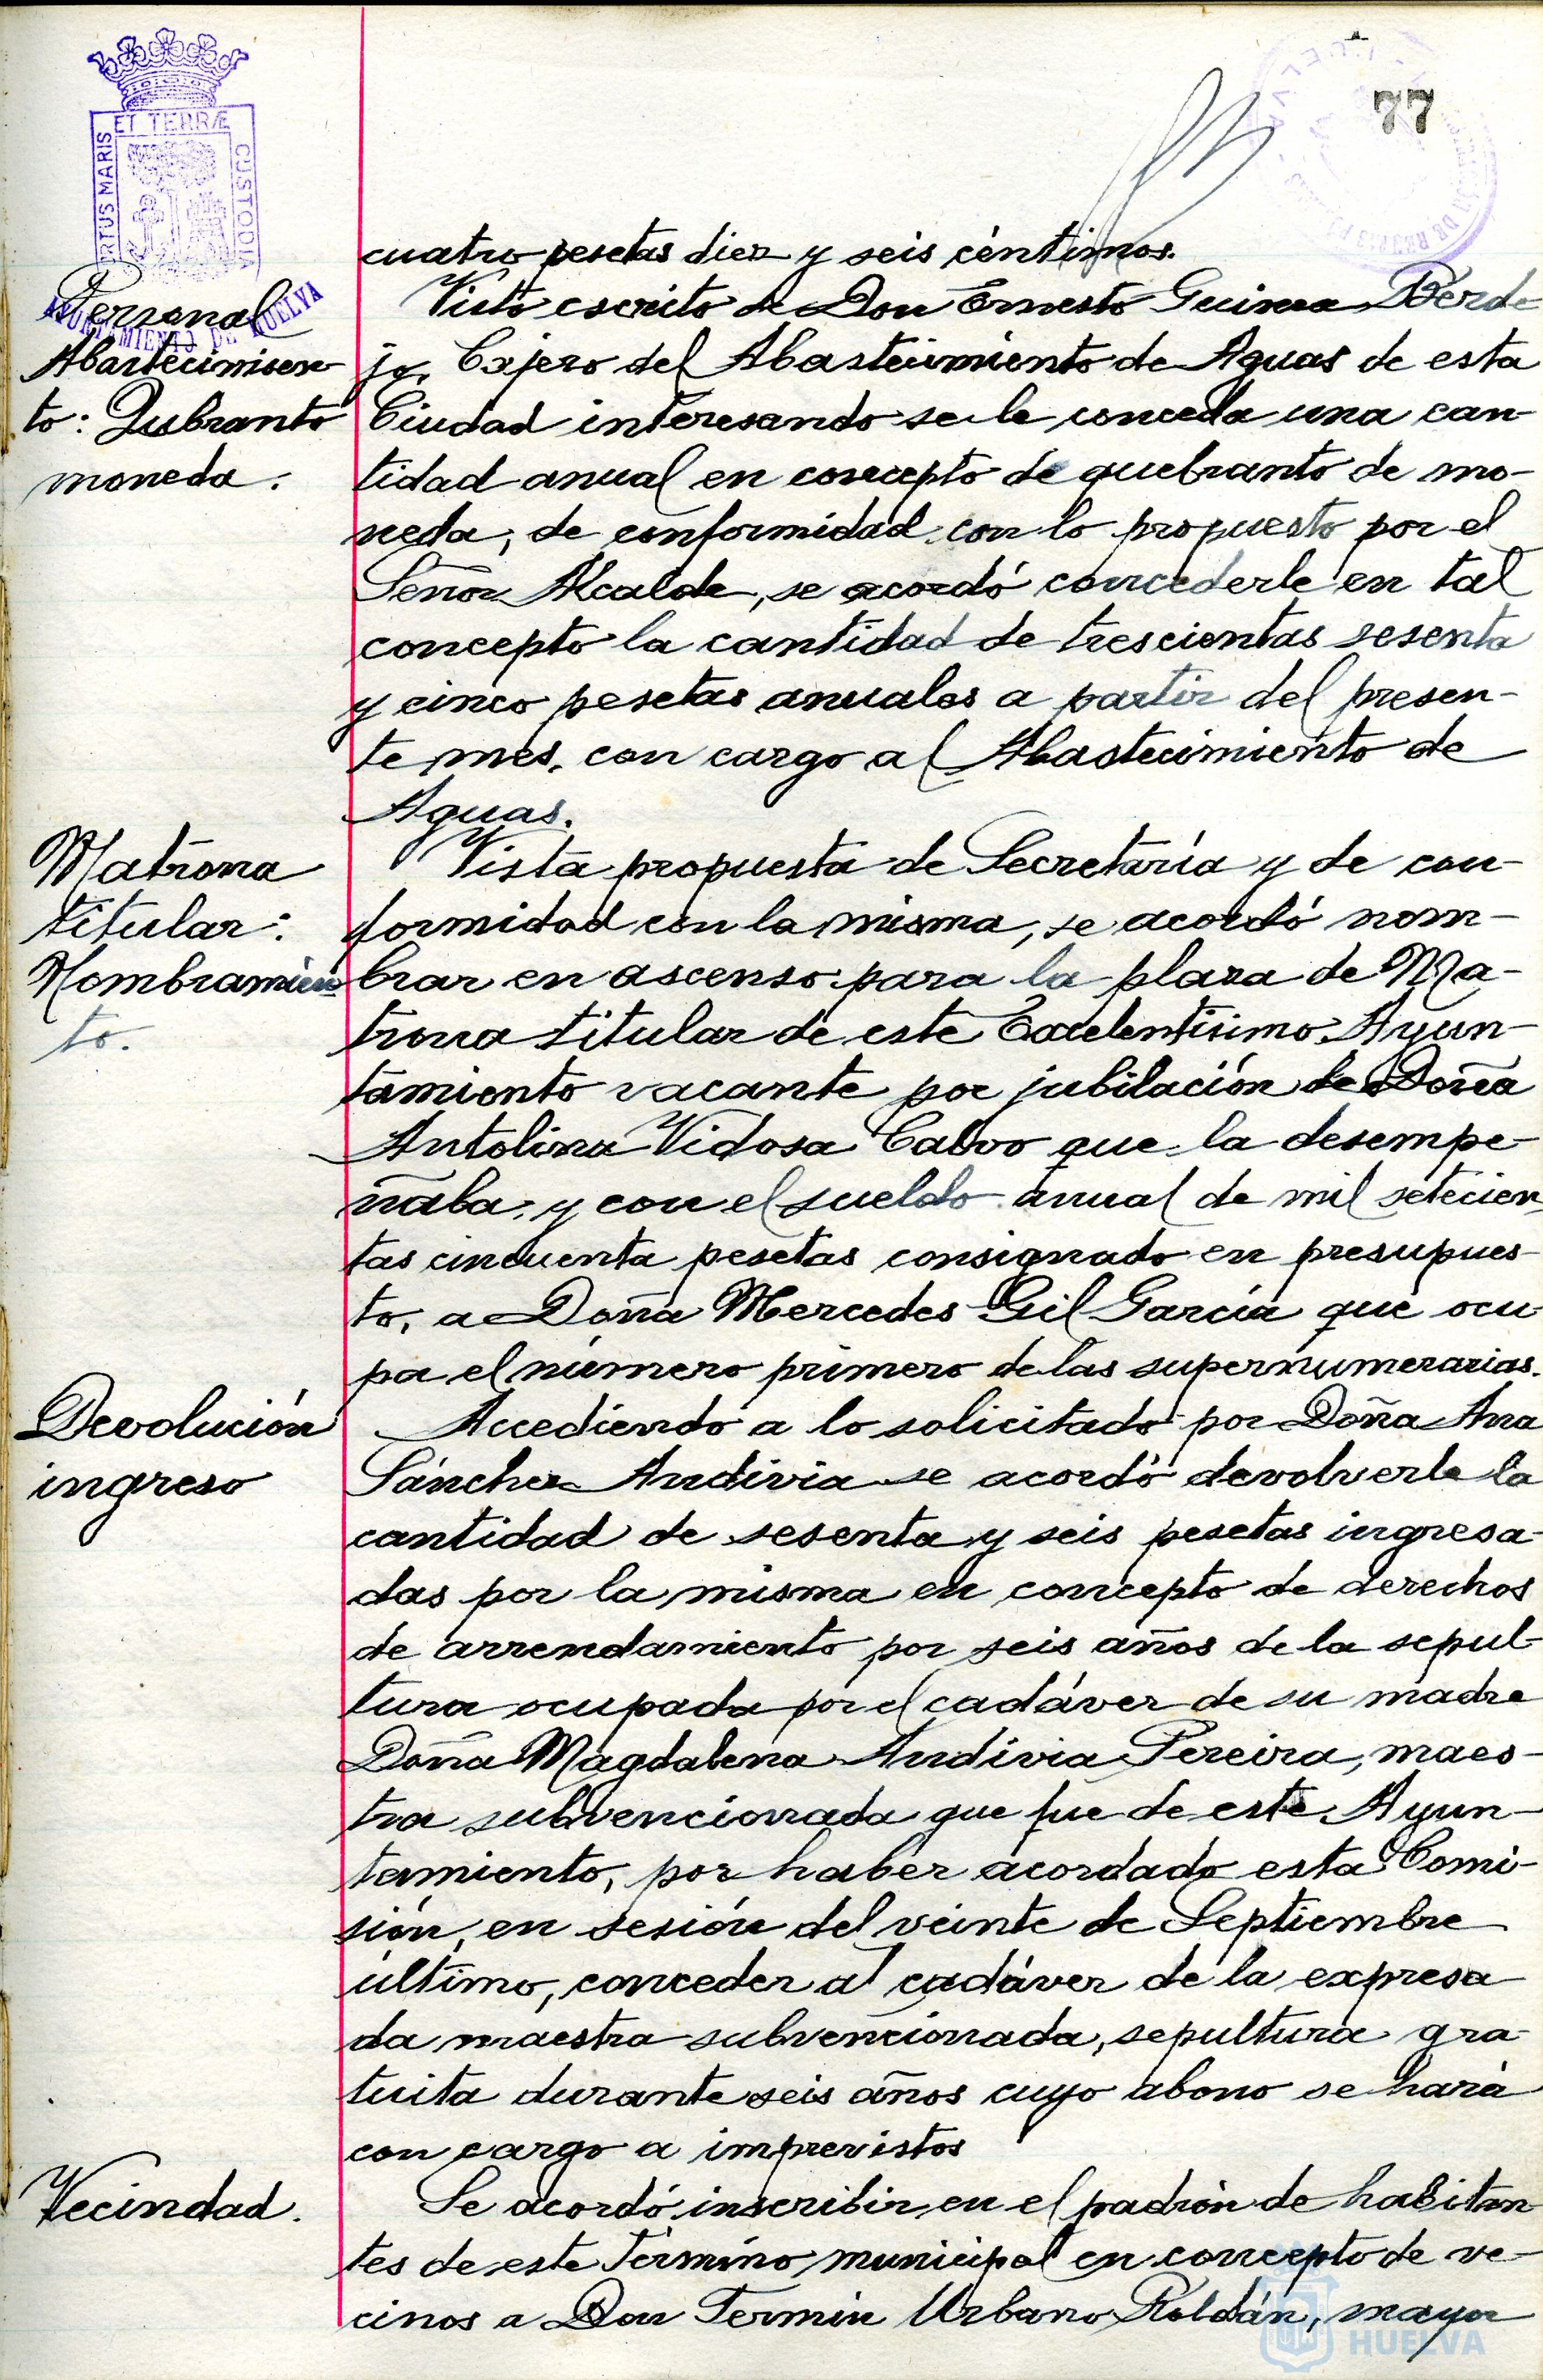 77
ET TERRÆ
PORTUS MARIS
CUSTODIA
AYUNTAMIENTO DE HUELVA
cuatro pesetas diez y seis céntimos.
Personal
Abastecimien-
to: Qubranto
moneda.
Visto escrito de Don Ernesto Guinea Berde
jo, Cajero del Abastecimiento de Aguas de esta
Ciudad interesando se le conceda una can-
tidad anual en concepto de quebranto de mo-
neda, de conformidad con lo propuesto por el
Señor Alcalde, se acordó concederle en tal
concepto la cantidad de trescientas sesenta
y cinco pesetas anuales a partir del presen-
te mes, con cargo al Abastecimiento de
Aguas.
Matrona
titular:
Nombramien
to.
Vista propuesta de Secretaría y de con-
formidad con la misma, se acordó nom-
brar en ascenso para la plaza de Ma-
trona titular de este Excelentísimo Ayun-
tamiento vacante por jubilación de Doña
Antolina Vidosa Calvo que la desempe-
ñaba, y con el sueldo anual de mil setecien
tas cincuenta pesetas consignado en presupues-
to, a Doña Mercedes Gil García que ocu
pa el número primero de las supernumerarias.
Devolución
ingreso
Accediendo a lo solicitado por Doña Ana
Sánchez Andivia se acordó devolverle la
cantidad de sesenta y seis pesetas ingresa-
das por la misma en concepto de derechos
de arrendamiento por seis años de la sepul-
tura ocupada por el cadáver de su madre
Doña Magdalena Andivia Pereira, maes-
tra subvencionada que fue de este Ayun-
tamiento, por haber acordado esta Comi-
sión, en sesión del veinte de Septiembre
último, conceder al cadáver de la expresa
da maestra subvencionada, sepultura gra
tuita durante seis años cuyo abono se hará
con cargo a imprevistos
Vecindad.
Se acordó inscribir en el padrón de habitan
tes de este Término municipal en concepto de ve-
cinos a Don Fermin Urbano Roldán, mayor
HUELVA